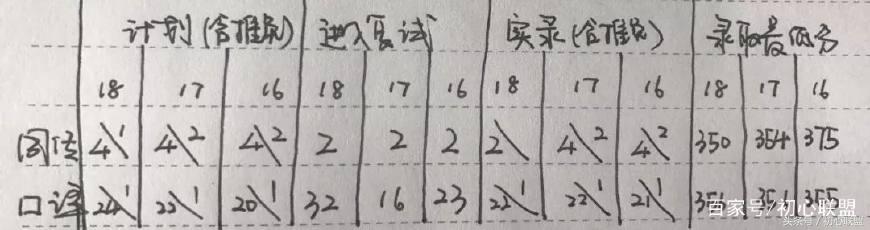 计划(含推免) 进入复试 实录(含推免) 录取最低分
18 17 16 18 17 16 18 17 16 18 17 16
同传 4\1 4\2 4\2 2 2 2 2\ 4\2 4\2 350 354 375
口译 24\1 22\1 20\1 32 16 23 22\1 22\1 21\1 351 355
百家号/初心联盟
头条号/初心联盟